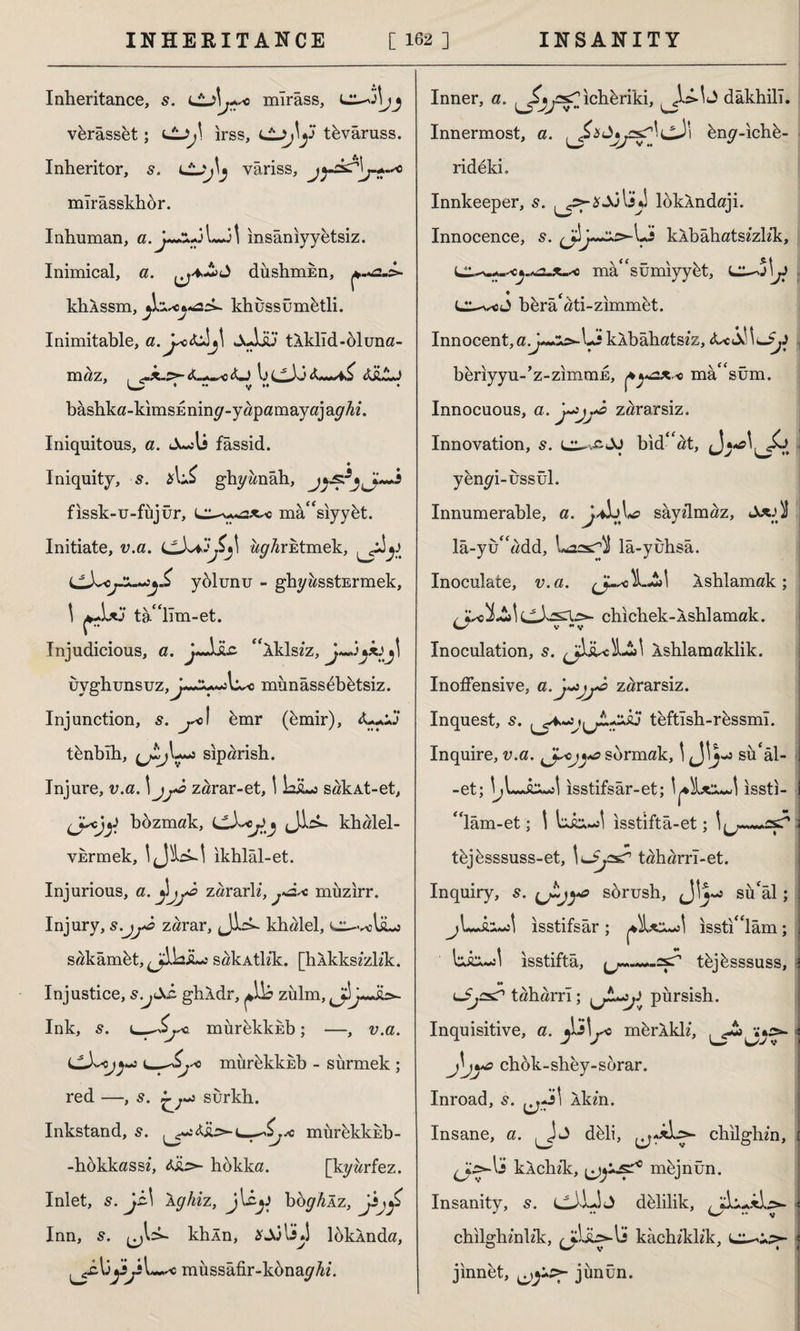 INHERITANCE [ 162 ] INSANITY
Inheritance, s. ميراث mīrāss, وراثت
vĕrāssĕt ; ارث ìrss, توارث tĕvāruss.
Inheritor, s. وارث vāriss, ميراثخور
mīrāsskhòr.
Inhuman, a. انسانيتسز ìnsānìyyĕtsiz.
Inimical, a. دشمن dŭshmEn, خصم
khAssm, خصومتلى khŭssūmĕtli.
Inimitable, a. تقليد اولنماز tAklīd-òluna-
maz, بشقه كمسه‌نك ياپه‌ميه‌جغى
băshka-kìmsEnìng-yapamayajaghi.
Iniquitous, a. فاسد fāssid.
Iniquity, s. گناه ghyunāh, فسق و فجور
fìssk-u-fŭjūr, معصيت mă“sìyyĕt.
Initiate, v.a. اوگرتمك ughrEtmek, يولنى
گوسترمك yŏlunu - ghyusstErmek,
تعليم ا tă“līm-et.
Injudicious, a. عقلسز “Aklsiz, اويغونسز
ŭyghunsuz, مناسبتسز mŭnāssébĕtsiz.
Injunction, s. امر ĕmr (ĕmir), تنبيه
tĕnbīh, سپارش sìparish.
Injure, v.a. ضرر ا zarar-et, سقط ا sakAt-et,
بوزمق bŏzmak, خلل ويرمك khalel-
vErmek, اخلال ا ìkhlāl-et.
Injurious, a. ضررلى zararli, مضر mŭzìrr.
Injury, s. ضرر zarar, خلل khalel, سقامت
sakāmĕt, سقطلق sakAtlik. [hAkksizlik.
Injustice, s. غدر ghAdr, ظلم zŭlm, حقسزلق
Ink, s. مركب mŭrĕkkEb ; —, v.a.
مركب سورمك mŭrĕkkEb - sŭrmek ;
red —, s. سرخ sŭrkh.
Inkstand, s. مركب حقه‌سى mŭrĕkkEb-
-hŏkkassi, حقه hŏkka. [kyurfez.
Inlet, s. اغز Aghiz, بوغاز bŏghAz, كورفز
Inn, s. خان khAn, لوقانده lŏkAnda,
مسافر قوناغى mŭssāfir-kŏnaghi.
Inner, a. ايچروكى ìchĕriki, داخلى dākhilī.
Innermost, a. اك ايچروده‌كى ĕng-ìchĕ-
ridéki.
Innkeeper, s. لوقانده‌جى lŏkAndaji.
Innocence, s. قباحتسزلق kAbāhatsizlik,
معصوميت mă“sūmìyyĕt, برائت
ذمت bĕrā‘ăti-zìmmĕt.
Innocent, a. قباحتسز kAbāhatsiz, برى الذمه
bĕrìyyu-’z-zìmmE, معصوم mă“sūm.
Innocuous, a. ضررسز zararsiz.
Innovation, s. بدعت bìd“at, يكى اصول
yĕngi-ŭssūl.
Innumerable, a. صايلماز sayilmaz, لايعد
lā-yŭ“add, لايحصا lā-yŭhsā.
Inoculate, v.a. اشلامق Ashlamak ;
چيچك اشلامق chìchek-Ashlamak.
Inoculation, s. اشلامقلق Ashlamaklik.
Inoffensive, a. ضررسز zararsiz.
Inquest, s. تفتيش رسمى tĕftīsh-rĕssmī.
Inquire, v.a. صورمق sŏrmak, سؤال ا sŭ‘āl-
-et ; استفسار ا ìsstifsār-et ; استعلام ا ìsstì-
“lām-et ; استفتا ا ìsstiftā-et ; تجسس ا
tĕjĕsssuss-et, تحرى ا taharrī-et.
Inquiry, s. صورش sŏrush, سؤال sŭ‘āl ;
استفسار ìsstifsār ; استعلام ìsstì“lām ;
استفتا ìsstiftā, تجسس tĕjĕsssuss,
تحرى taharrī ; پرسش pŭrsish.
Inquisitive, a. مراقلى mĕrAkli, چوق شى
صورار chŏk-shĕy-sŏrar.
Inroad, s. اقين Akin.
Insane, a. دلى dĕli, چلغين chìlghin,
قاچق kAchik, مجنون mĕjnūn.
Insanity, s. دليلك dĕlilik, چلغينلق
chìlghinlik, قاچقلق kăchiklik, جنت
jìnnĕt, جنون jŭnūn.